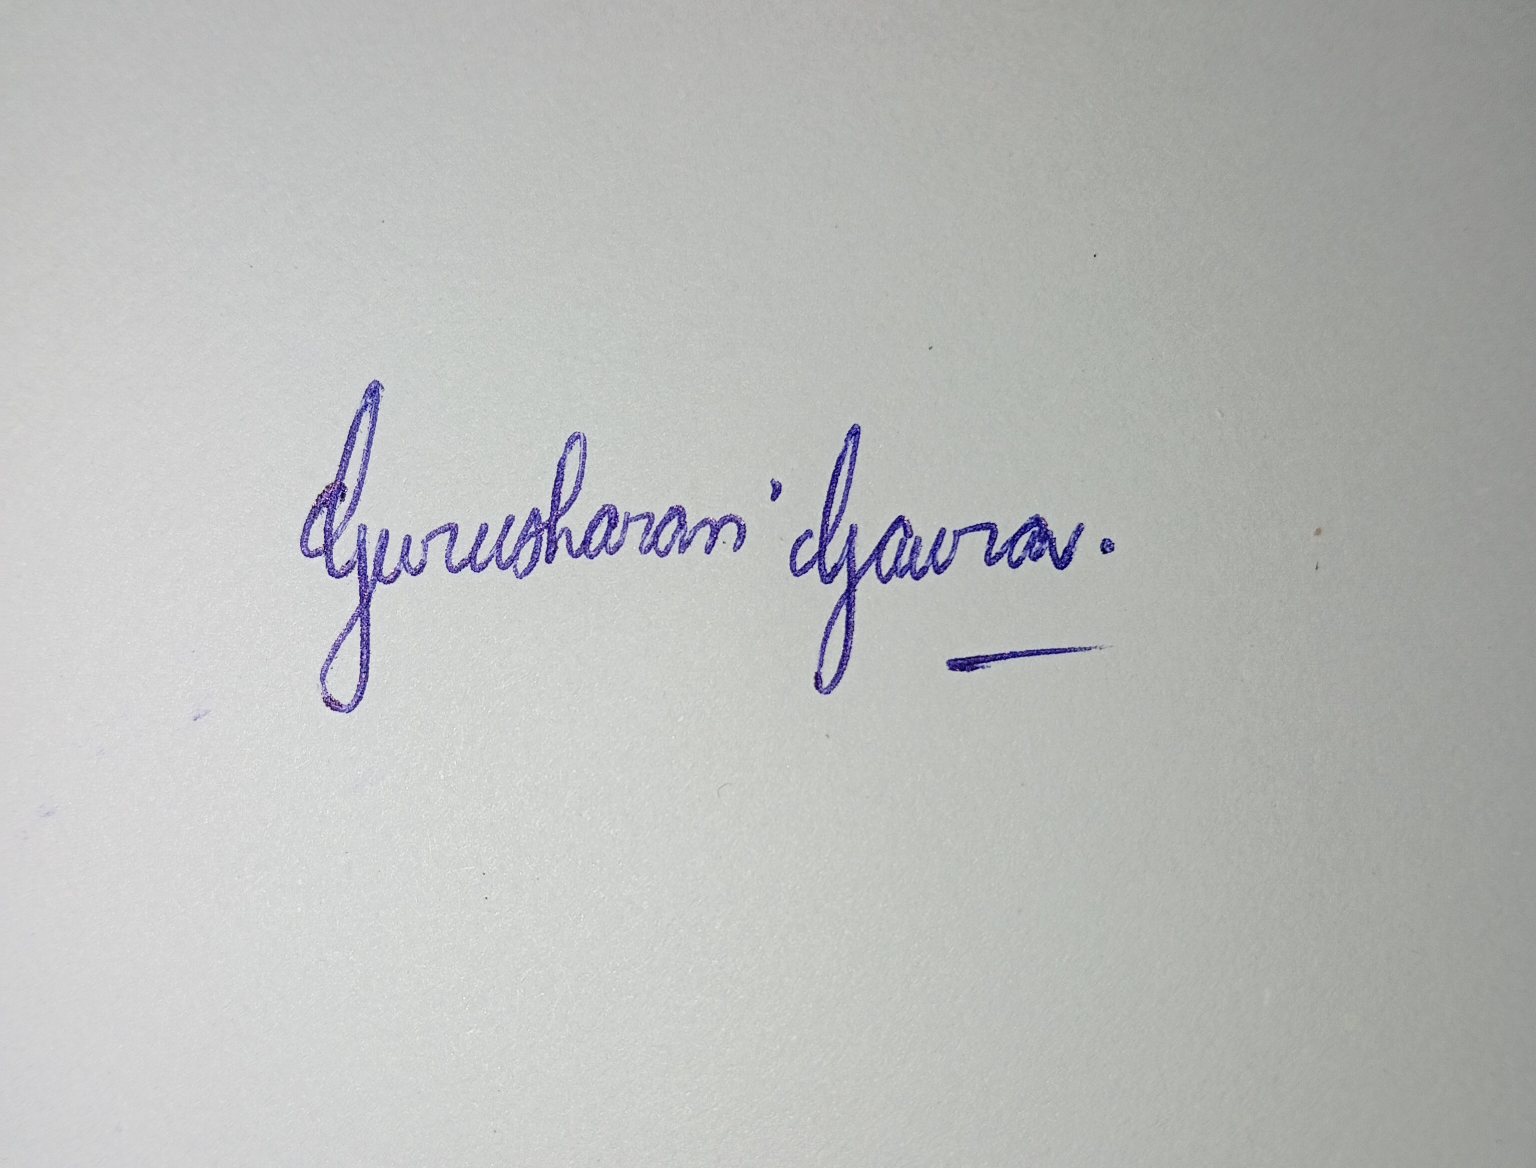 Gurusharan Gaurav.